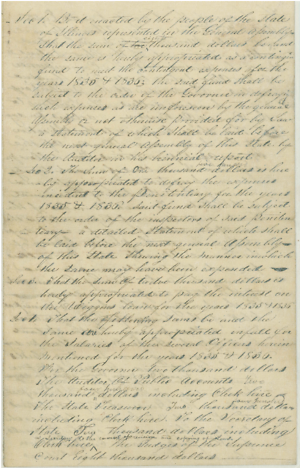 Sec 1. Be it enacted by the people of the State
of Illinois represented in the General Assembly
That the sum of two thousand dollars be and
the same is hereby appropriated as a contingent
fund to meet the contingent expenses for the
years 1835 & 1836; the said fund shall be
subject to the order of the Governor in defraying
such expenses as are unforeseen by the General
Assembly & not otherwise provided for by law
a statement of which shall be laid before
the next general Assembly of this State by
the Auditor in his biennial report
Sec 2. The sum of One thousand dollars is here
by appropriated to defray the expenses
incident to the Penitentiary for the years
1835 & 1836. Said fund shall be subject
to the order of the inspectors of said Peniten
tiary a detailed statement of which shall
be laid before the next general Assembly
of this State showing the manner in which
the same may have been expended
Sec 3 That the sum of thousand dollars is
hereby appropriated to pay the interest on
the Loan for the years 1835 & 1836
Sec 4 That the following sums be and the
same are hereby appropriated to
the salaries of the several officers herein
mentioned for the years 1835 & 1836.
For the Governor two thousand dollars
The Auditor of Public Accounts
thousand dollars including clerk hire
The State Treasurer thousand dollars
including clerk hire. To the Secretary of
State thousand dollars including
clerk hire The Judges of the Supreme
Court eight thousand dollars